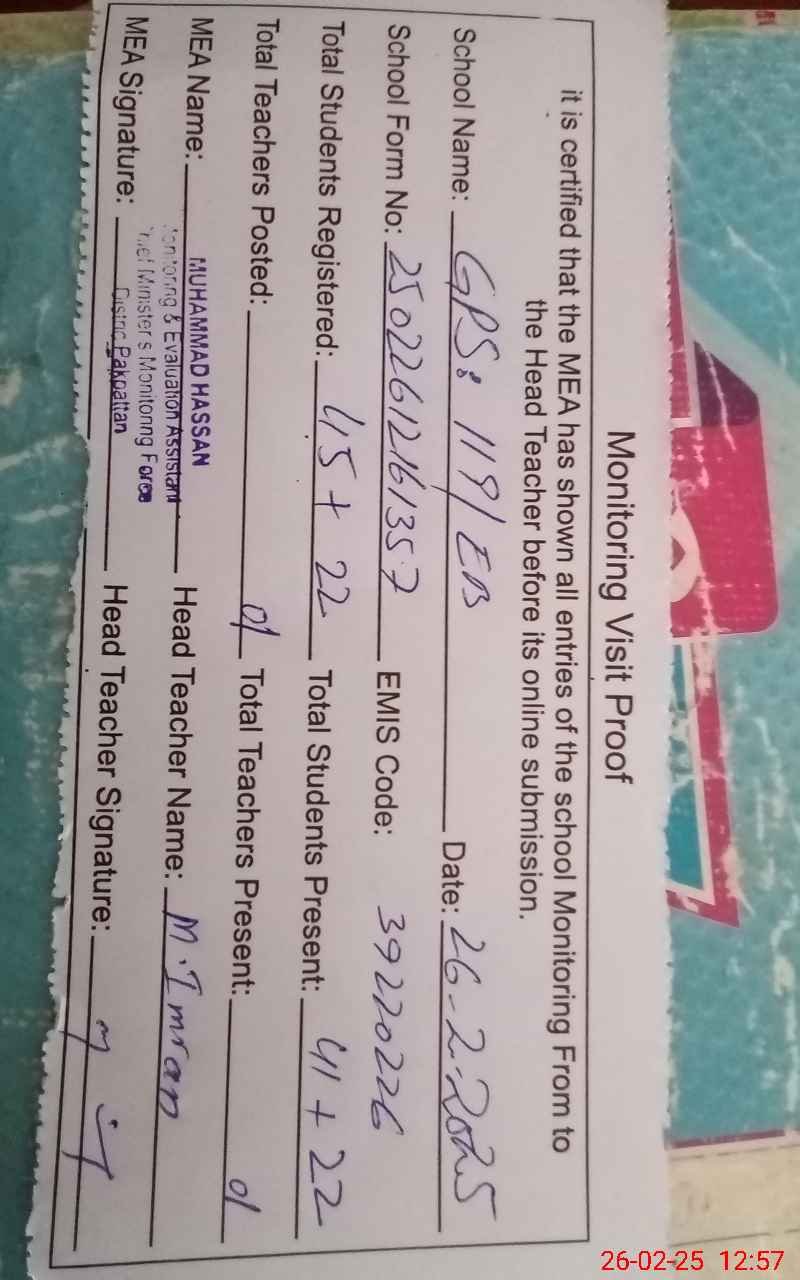 Monitoring Visit Proof
it is certified that the MEA has shown all entries of the school Monitoring From to
the Head Teacher before its online submission.
School Name: GPS: 119/EB Date: 26-2-2025
School Form No: 250226121613357 EMIS Code: 39220226
Total Students Registered: 45 + 22 Total Students Present: 41 + 22
Total Teachers Posted: 01 Total Teachers Present: 01
MEA Name: MUHAMMAD HASSAN Head Teacher Name: M. Imran
Monitoring & Evaluation Assistant
Chief Minister's Monitoring Force
District Pakpattan
MEA Signature: Head Teacher Signature:
26-02-25 12:57